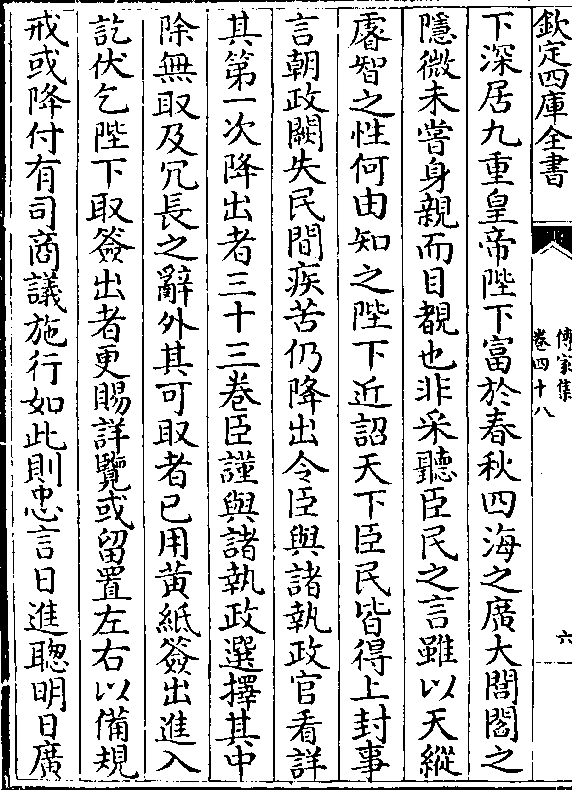 欽定四庫全書
傳家集
卷四十八
六
下深居九重皇帝陛下富於春秋四海之廣大閭閻之
隱微未嘗身親而目覩也非采聽臣民之言雖以天縱
睿智之性何由知之陛下近詔天下臣民皆得上封事
言朝政闕失民間疾苦仍降出令臣與諸執政官看詳
其第一次降出者三十三卷臣謹與諸執政選擇其中
除無取及冗長之辭外其可取者已用黄紙簽出進入
訖伏乞陛下取簽出者更賜詳覽或留置左右以備規
戒或降付有司商議施行如此則忠言日進聰明日廣